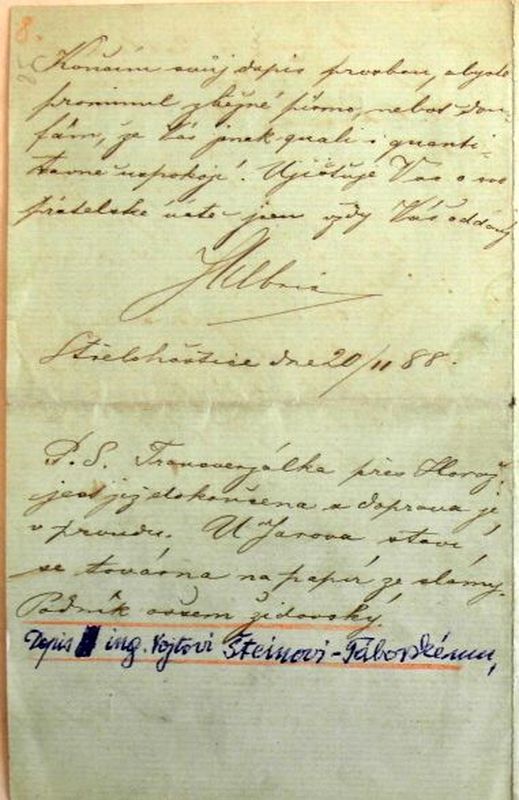 8.
Končím svůj dopis prosbou, abyste
prominul zběžné písmo, neboť dou-
fám, že Vás jinak quali i quanti-
tativně uspokojí. Ujišťuje Vás o své
přátelské úctě jsem vždy Váš oddaný
Střelohoštice dne 20/11 88.
P.S. Transversálka přes Horaž.
jest již dokončena a doprava je
v proudu. U Jarova staví
se továrna na papír ze slámy.
Podnik ovšem židovský.
Dopis ing. Vojtovi Šteinovi-Táborskému,